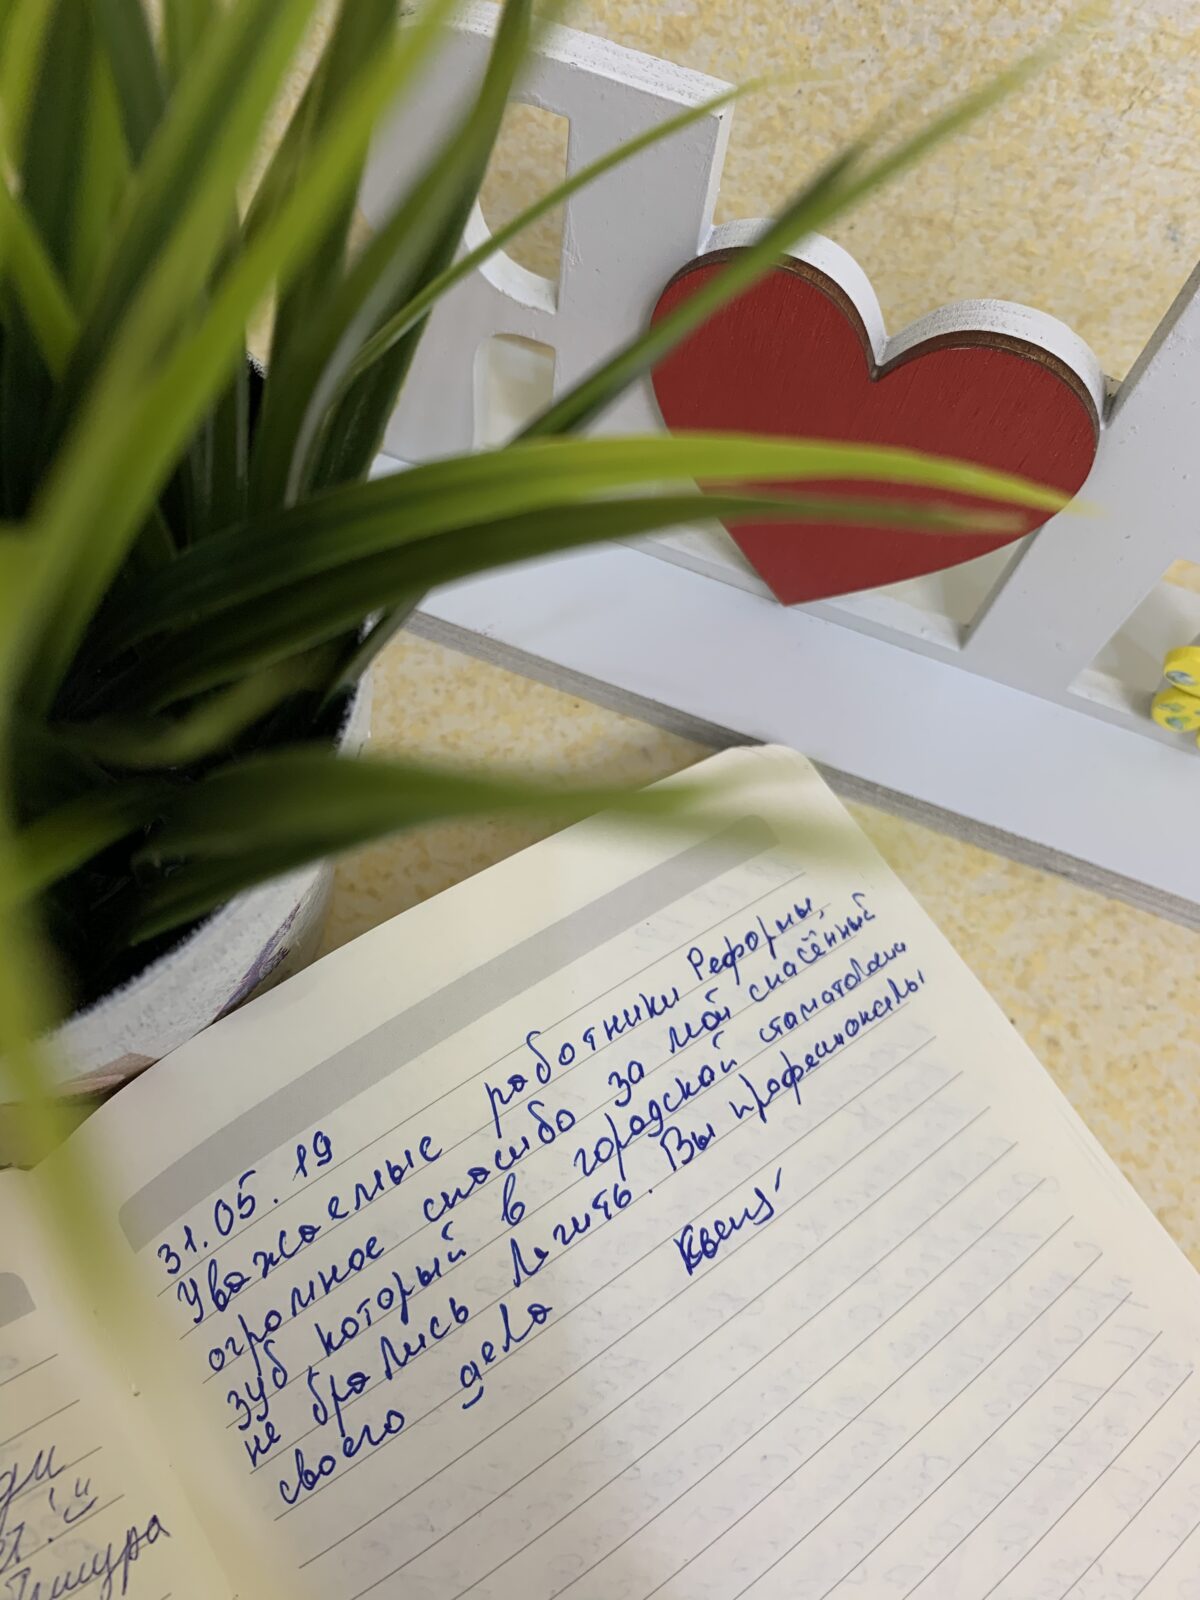 31.05.19
Уважаемые работники Реформы,
огромное спасибо за мой спасённый
зуб, который в городской
не брались лечить. Вы професионалы
своего дела